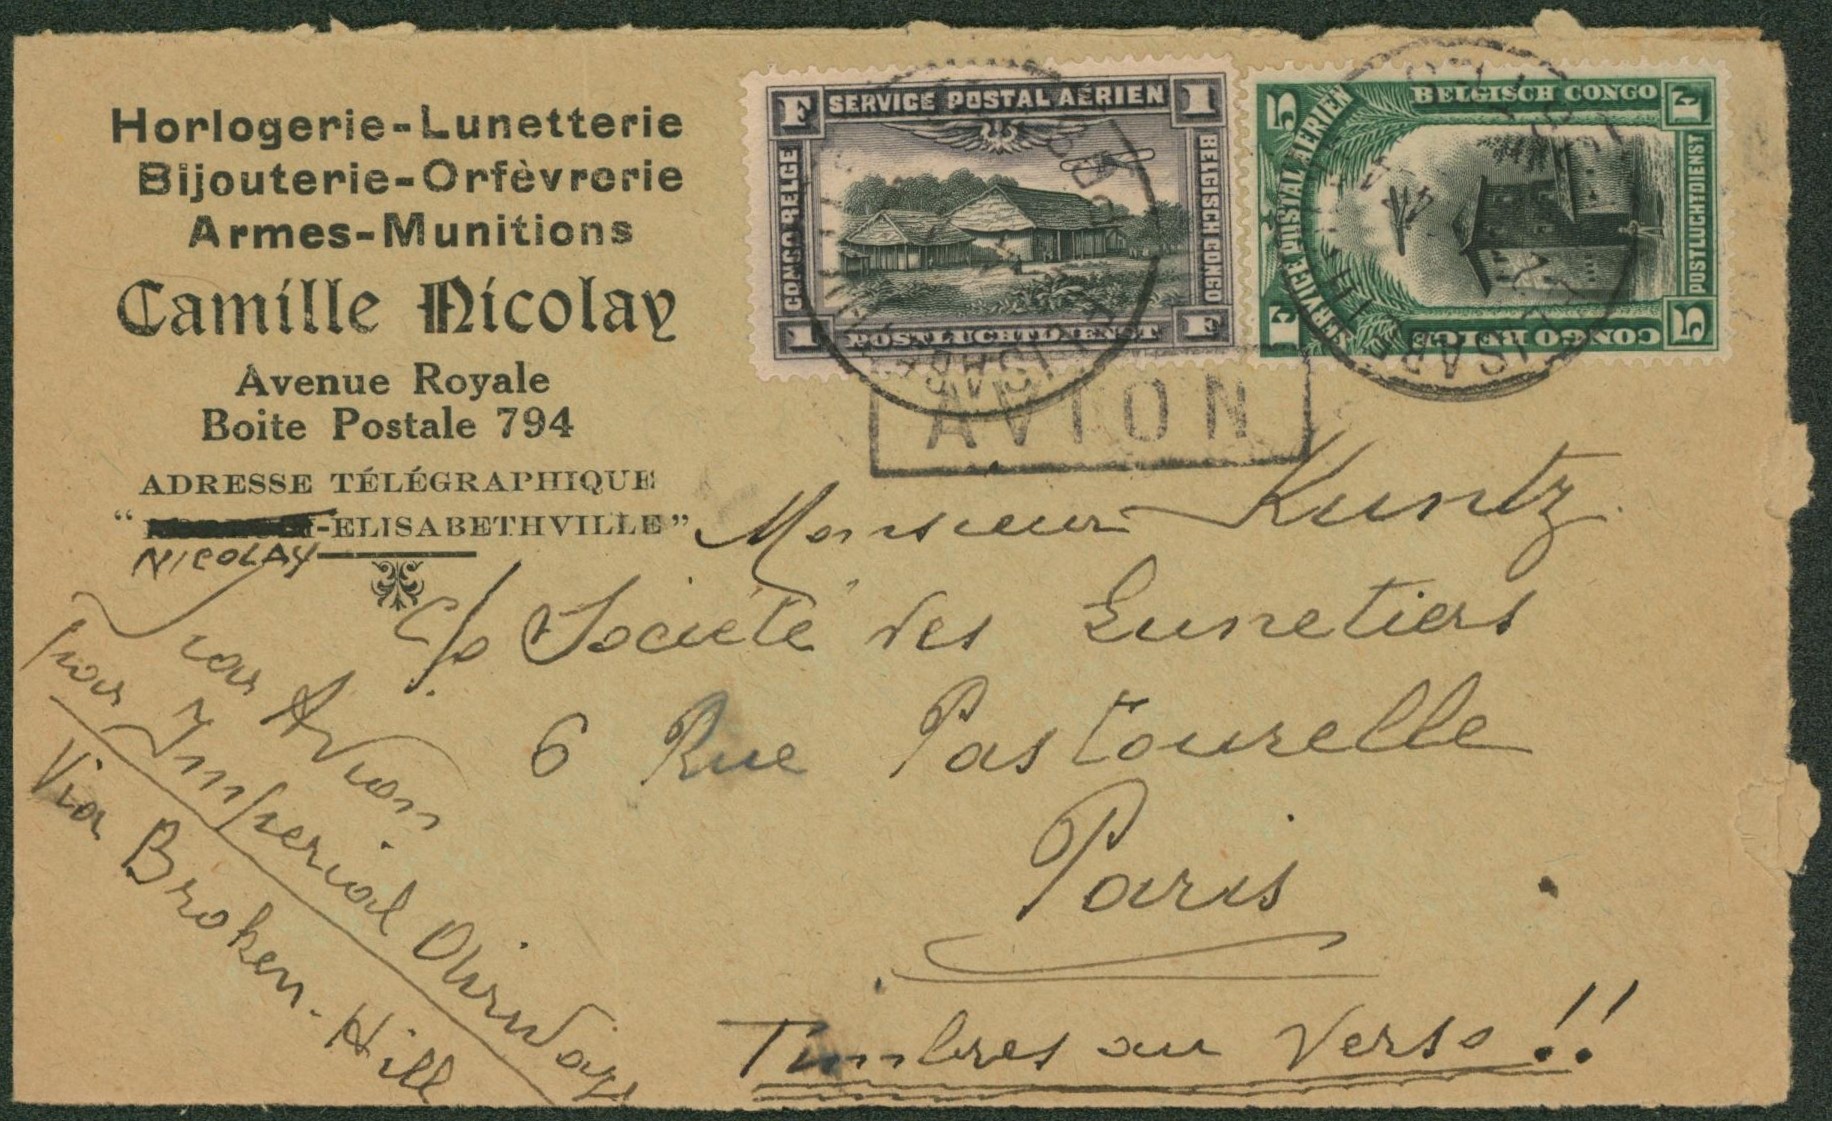 Horlogerie-Lunetterie
Bijouterie-Orfèvrerie
Armes-Munitions
Camille Nicolay
Avenue Royale
Boite Postale 794
ADRESSE TÉLÉGRAPHIQUE
"-ELISABETHVILLE"
NICOLAY
F SERVICE POSTAL AÉRIEN 1
CONGO BELGE
BELGISCH CONGO
1 POSTLUCHTDIENST F
5 BELGISCH CONGO F
SERVICE POSTAL AÉRIEN
POSTLUCHTDIENST
F CONGO BELGE 5
AVION
Monsieur Kuntz
c/o Société des Lunetiers
6 Rue Pastourelle
Paris
Timbres au Verso !!
Par Avion
Par Imperial Airways
Via Broken-Hill